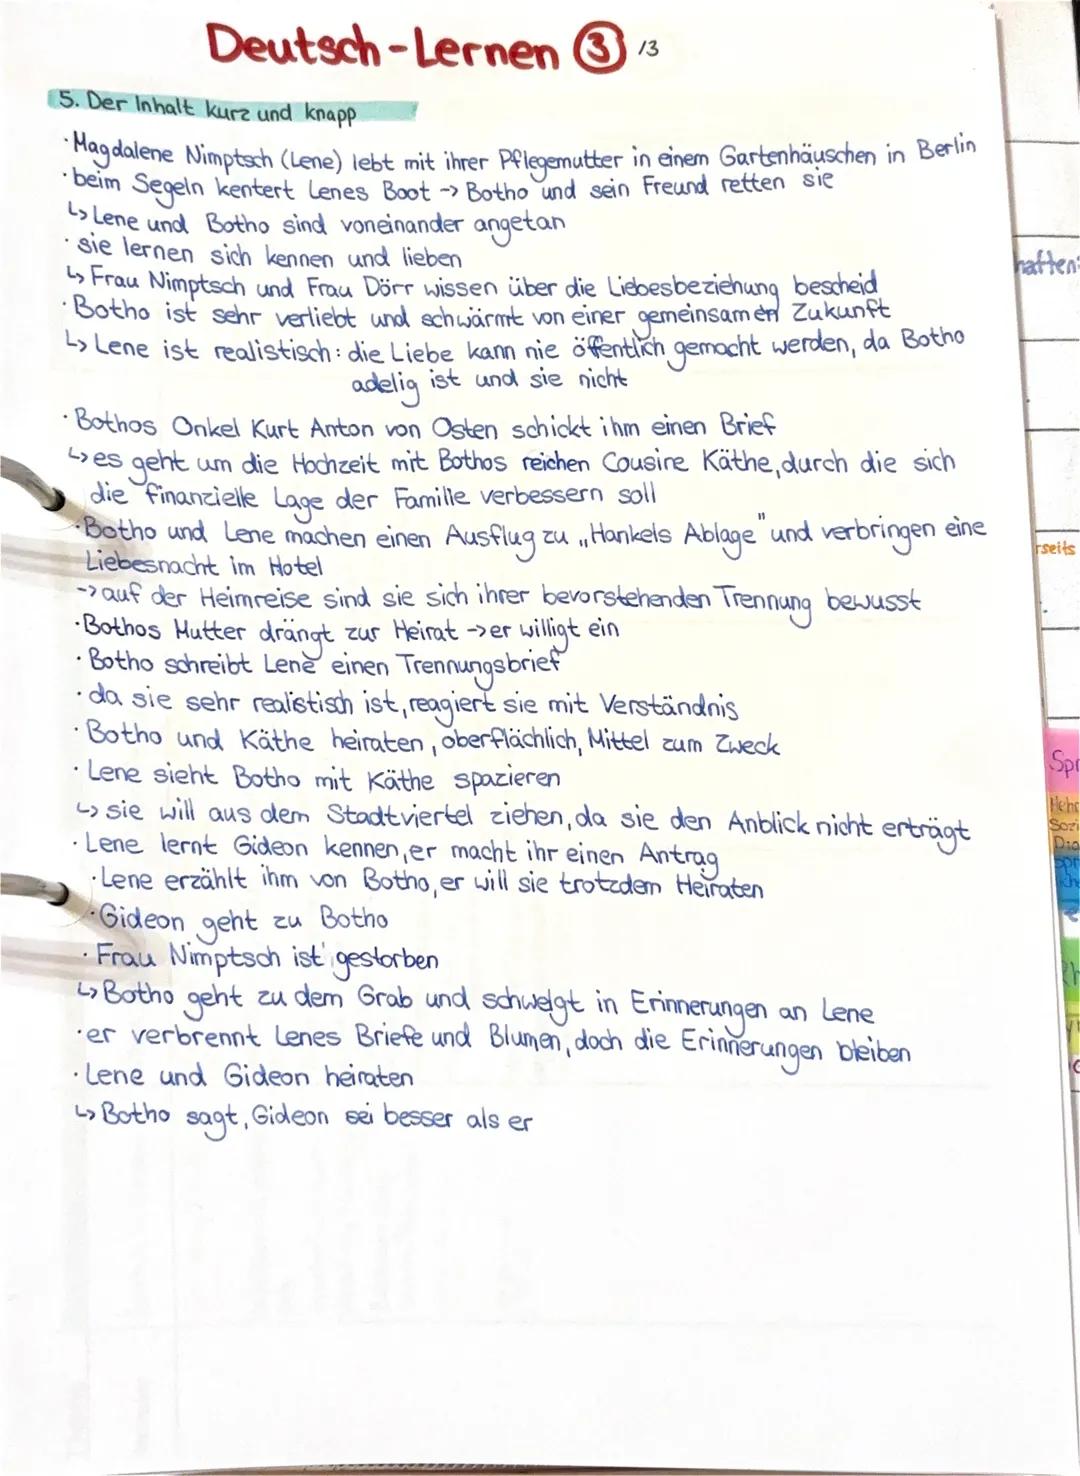 Deutsch-Lernen ③ 13
5. Der Inhalt kurz und knapp
· Magdalene Nimptsch (Lene) lebt mit ihrer Pflegemutter in einem Gartenhäuschen in Berlin
· beim Segeln kentert Lenes Boot -> Botho und sein Freund retten sie
↳ Lene und Botho sind voneinander angetan
· sie lernen sich kennen und lieben
↳ Frau Nimptsch und Frau Dörr wissen über die Liebesbeziehung bescheid
· Botho ist sehr verliebt und schwärmt von einer gemeinsamen Zukunft
↳ Lene ist realistisch: die Liebe kann nie öffentlich gemacht werden, da Botho
adelig ist und sie nicht
· Bothos Onkel Kurt Anton von Osten schickt ihm einen Brief
↳ es geht um die Hochzeit mit Bothos reichen Cousine Käthe, durch die sich
die finanzielle Lage der Familie verbessern soll
· Botho und Lene machen einen Ausflug zu „Hankels Ablage" und verbringen eine
Liebesnacht im Hotel
-> auf der Heimreise sind sie sich ihrer bevorstehenden Trennung bewusst
· Bothos Mutter drängt zur Heirat -> er willigt ein
· Botho schreibt Lene einen Trennungsbrief
· da sie sehr realistisch ist, reagiert sie mit Verständnis
· Botho und Käthe heiraten, oberflächlich, Mittel zum Zweck
· Lene sieht Botho mit Käthe spazieren
↳ sie will aus dem Stadtviertel ziehen, da sie den Anblick nicht erträgt
· Lene lernt Gideon kennen, er macht ihr einen Antrag
· Lene erzählt ihm von Botho, er will sie trotzdem Heiraten
· Gideon geht zu Botho
· Frau Nimptsch ist gestorben
↳ Botho geht zu dem Grab und schwelgt in Erinnerungen an Lene
· er verbrennt Lenes Briefe und Blumen, doch die Erinnerungen bleiben
· Lene und Gideon heiraten
↳ Botho sagt, Gideon sei besser als er
haften:
rseits
Spr
Mehr
Sozi
Dia